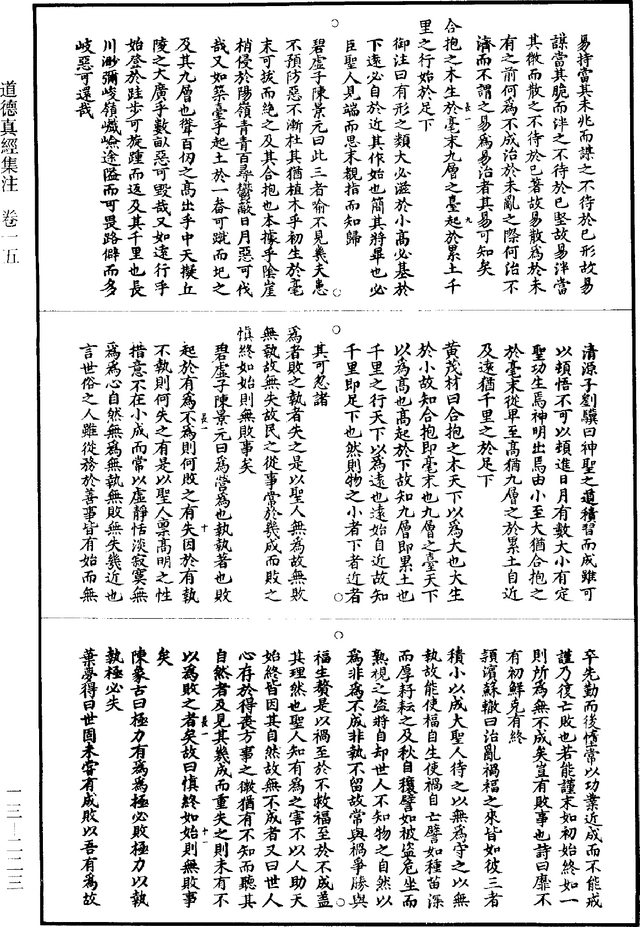 易持當其未兆而謀之不待於已形故易
謀當其脆而泮之不待於已堅故易泮當
其微而散之不待於已著故易散為於未
有之前何為不成治於未亂之際何治不
濟而不謂之易為易治者其易可知矣
合抱之木生於毫末九層之臺起於累土千
里之行始於足下
御注曰有形之類大必滋於小高必基於
下遠必自於近其作始也簡其將畢也必
巨聖人見端而思末覩指而知歸
碧虛子陳景元曰此三者喻不見幾夫患
不預防惡不漸杜其猶植木乎初生於毫
末可拔而絶之及其合抱也本據乎陰崖
梢侵於陽嶺青青百尋鬱蔽日月惡可伐
哉又如築臺乎起土於一畚可蹴而圯之
及其九層也聳百仞之高出乎中天擬丘
陵之大廣乎數畝惡可毀哉又如遠行乎
始登於跬步可旋踵而返及其千里也長
川渺瀰峻嶺巇嶮途隘而可畏路僻而多
岐惡可還哉
清源子劉驥曰神聖之道積習而成雖可
以頓悟不可以頓進日月有數大小有定
聖功生焉神明出焉由小至大猶合抱之
於毫末從卑至高猶九層之於累土自近
及遠猶千里之於足下
黃茂材曰合抱之木天下以為大也大生
於小故知合抱即毫末也九層之臺天下
以為高也高起於下故知九層即累土也
千里之行天下以為遠也遠始自近故知
千里即足下也然則物之小者下者近者
其可忽諸
為者敗之執者失之是以聖人無為故無敗
無執故無失故民之從事常於幾成而敗之
慎終如始則無敗事矣
碧虛子陳景元曰為營為也執執著也敗
起於有為不為則何敗之有失因於有執
不執則何失之有是以聖人禀高明之性
措意不在小成而常以虛靜恬淡寂寞無
為為心自然無為無執無敗無失幾近也
言世俗之人雖從務於善事皆有始而無
卒先勤而後惰常以功業近成而不能戒
謹乃復亡敗也若能謹末如初始終如一
則所為無不成矣豈有敗事也詩曰靡不
有初鮮克有終
潁濱蘇轍曰治亂禍福之來皆如彼三者
積小以成大聖人待之以無為守之以無
執故能使福自生使禍自亡譬如種苗深
而厚耔耘之及秋自穰譬如被盜危坐而
熟視之盜將自却世人不知物之自然以
為非為不成非執不留故常與禍爭勝與
福生贅是以禍至於不救福至於不成蓋
其理然也聖人知有為之害不以人助天
始終皆因其自然故無不成者又曰世人
心存於得喪方事之微猶有不知而聽其
自然者及見其幾成而重失之則未有不
以為敗之者矣故曰慎終如始則無敗事
矣
陳象古曰極力有為為極必敗極力以執
執極必失
葉夢得曰世固未嘗有成敗以吾有為故
道德真經集注 卷一五
一三—二二三